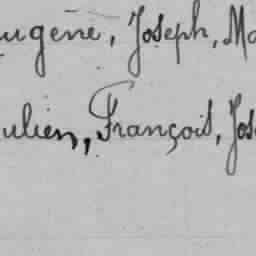 ugène, Joseph, Ma
ulien, François, Jos